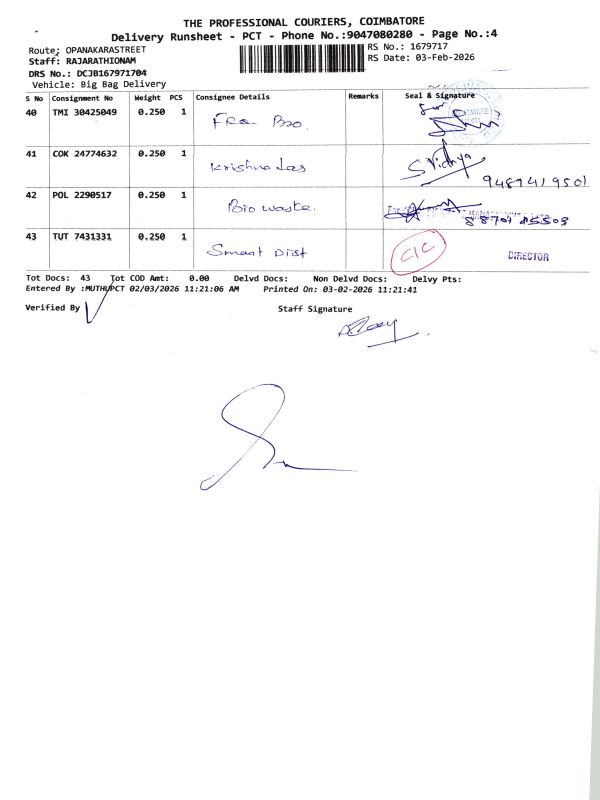 THE PROFESSIONAL COURIERS, COIMBATORE
Delivery Runsheet - PCT - Phone No.:9047080280 - Page No.:4
Route: OPANAKARASTREET
RS No.: 1679717
Staff: RAJARATHIONAM
RS Date: 03-Feb-2026
DRS No.: DCJB167971704
Vehicle: Big Bag Delivery
S No Consignment No Weight PCS Consignee Details Remarks Seal & Signature
40 TMI 30425049 0.250 1 Fra Bro.
41 COK 24774632 0.250 1 Krishna das S Vidhya
42 POL 2290517 0.250 1 Bio waste.
43 TUT 7431331 0.250 1 Smart Dist C/C DIRECTOR
Tot Docs: 43 Tot COD Amt: 0.00 Delvd Docs: Non Delvd Docs: Delvy Pts:
Entered By :MUTHUPCT 02/03/2026 11:21:06 AM Printed On: 03-02-2026 11:21:41
Verified By
Staff Signature